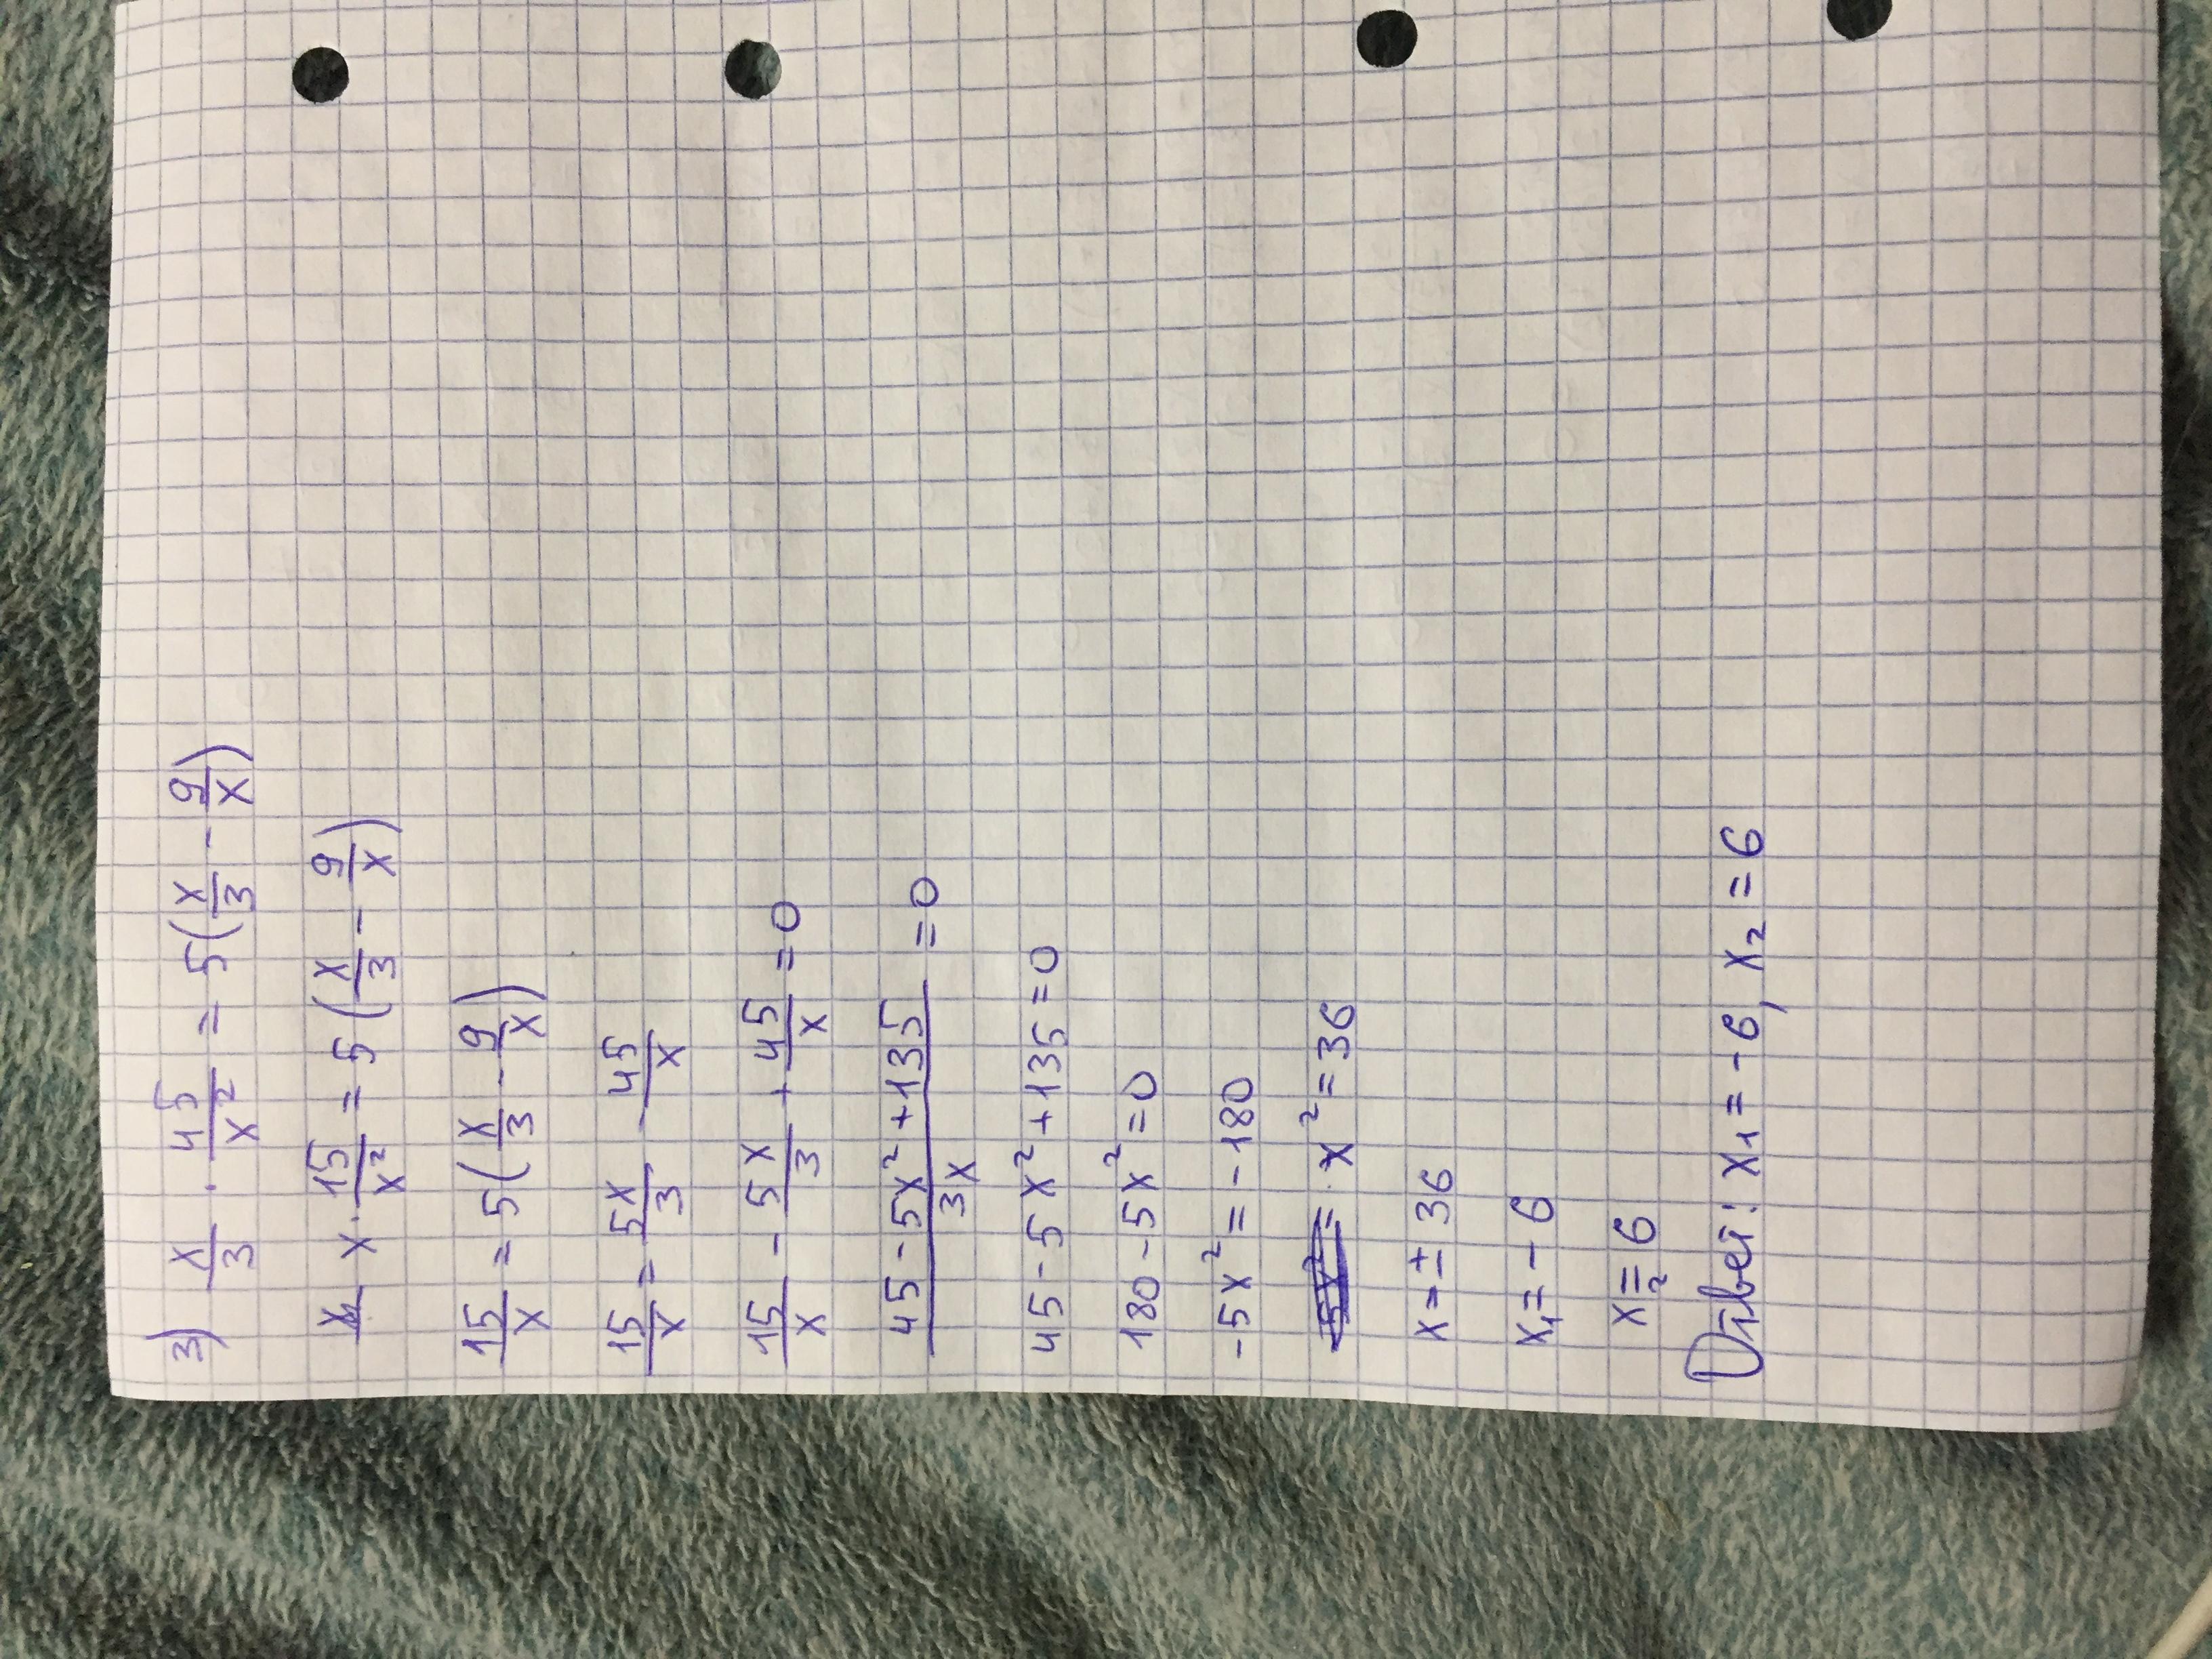 3) x/3 · 45/x² = 5(x/3 - 9/x)
x · 15/x² = 5(x/3 - 9/x)
15/x = 5(x/3 - 9/x)
15/x = 5x/3 - 45/x
15/x - 5x/3 + 45/x = 0
45 - 5x² + 135/3x = 0
45 - 5x² + 135 = 0
180 - 5x² = 0
-5x² = -180
x² = 36
x = ± 36
x₁ = - 6
x₂ = 6
Ответ: x₁ = -6, x₂ = 6